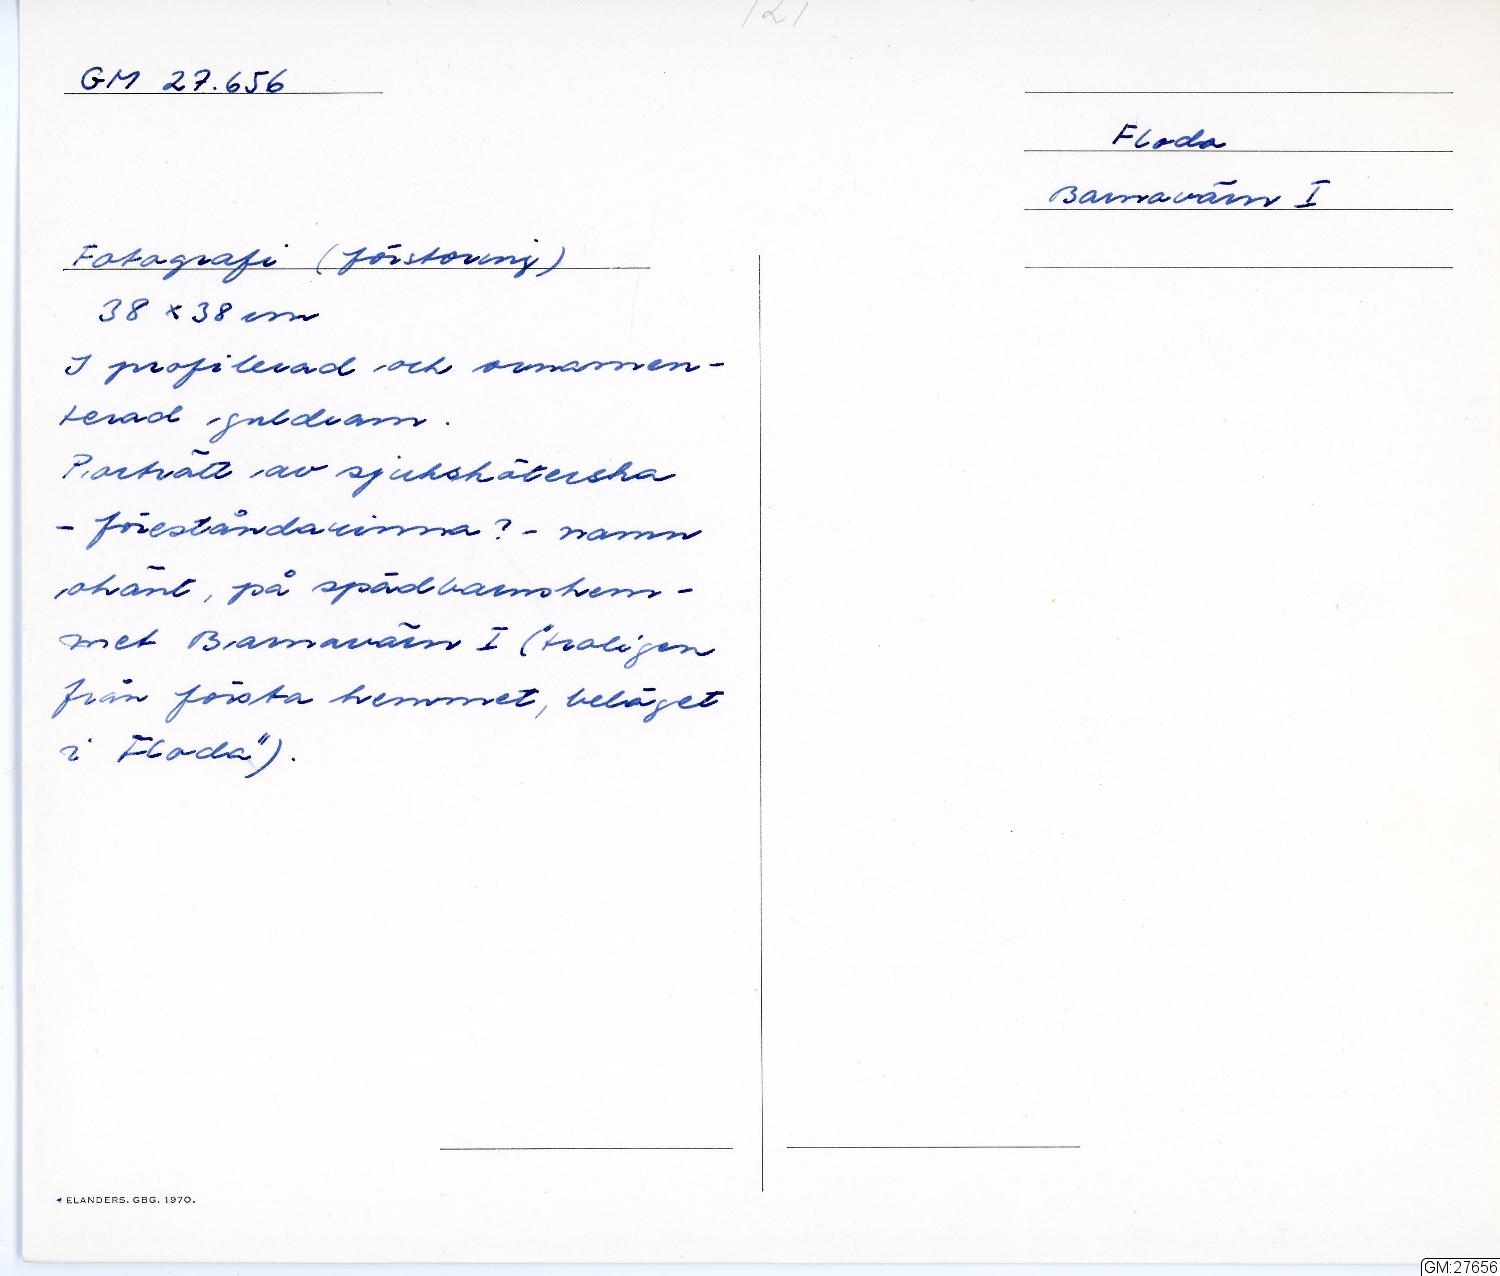 121
GM 27.656
Floda
Barnavärn I
Fotografi (förstoring)
38 x 38 cm
I profilerad och ornamen-
terad guldram.
Porträtt av sjuksköterska
- föreståndarinna? - namn
okänt, på spädbarnshem-
met Barnavärn I ("troligen
från första hemmet, beläget
i Floda").
ELANDERS. GBG. 1970.
GM:27656